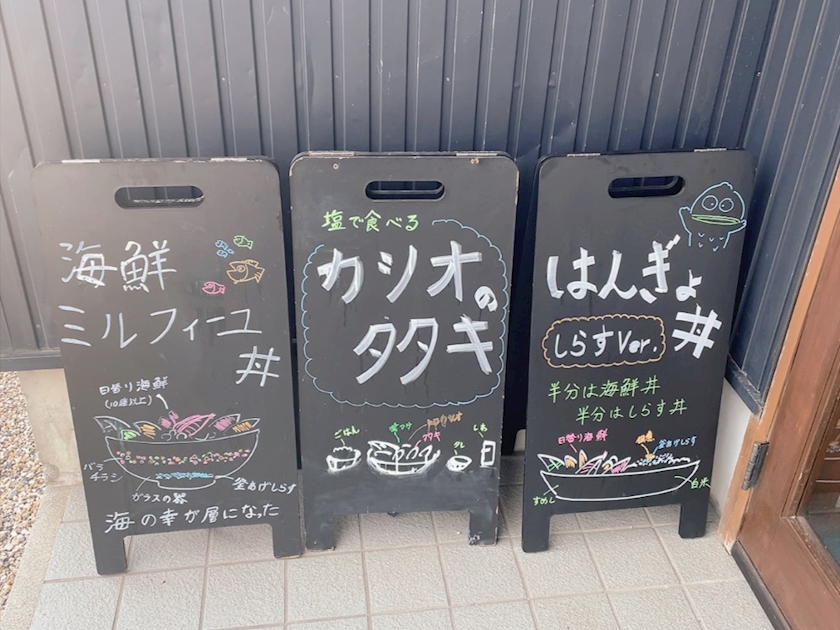 海鮮
ミルフィーユ
丼
日替り海鮮
(10種以上)
バラ
チラシ
釜あげしらす
ガラスの器
海の幸が層になった
塩で食べる
カツオの
タタキ
ごはん
タタキ
タレ
しお
はんぎょ
丼
しらすVer.
半分は海鮮丼
半分はしらす丼
日替り海鮮
釜あげしらす
すめし
白米